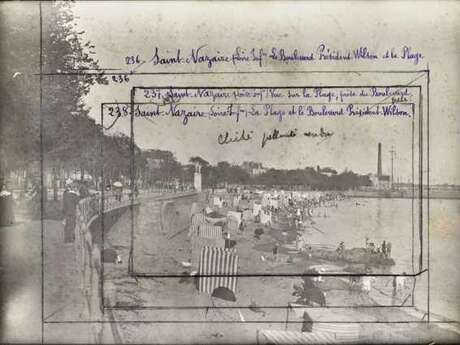 236_ Saint-Nazaire (Loire Infre_ Le Boulevard Président Wilson et la Plage
236
237_ Saint-Nazaire (Loire-Infre) Vue sur la Plage, prise du Boulevard
238_ Saint-Nazaire (Loire-Infre_ La Plage et le Boulevard Président-Wilson_
Cliché